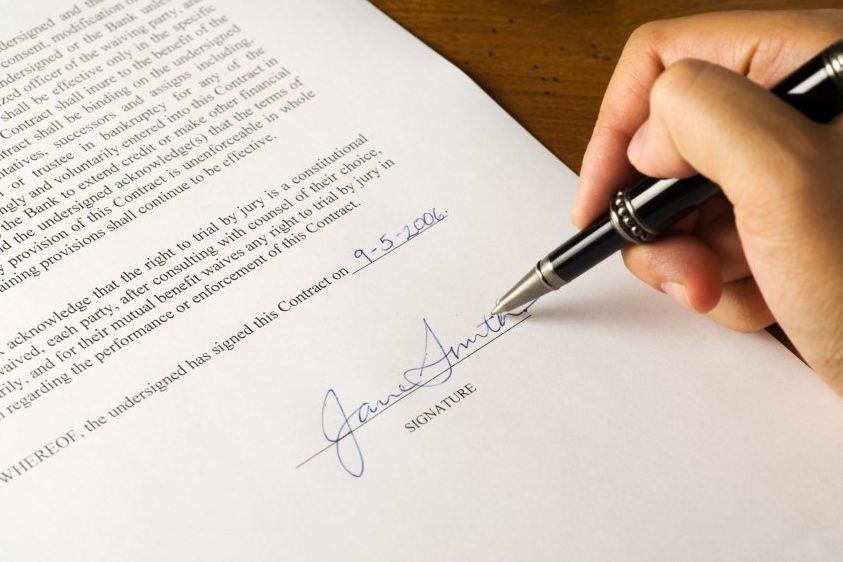 dersigned and the
consent, modification o
dersigned or the Bank unles
zed officer of the waiving party, and
shall be effective only in the specific
Contract shall inure to the benefit of the
tract shall be binding on the undersigned
ntatives, successors and assigns including,
or trustee in bankruptcy for any of the
ngly and voluntarily entered into this Contract in
the Bank to extend credit or make other financial
d the undersigned acknowledge(s) that the terms of
y provision of this Contract is unenforceable in whole
aining provisions shall continue to be effective.
acknowledge that the right to trial by jury is a constitutional
waived, each party, after consulting with counsel of their choice,
rily, and for their mutual benefit waives any right to trial by jury in
n regarding the performance or enforcement of this Contract.
WHEREOF, the undersigned has signed this Contract on 9-5-2006.
Jane Smith
SIGNATURE